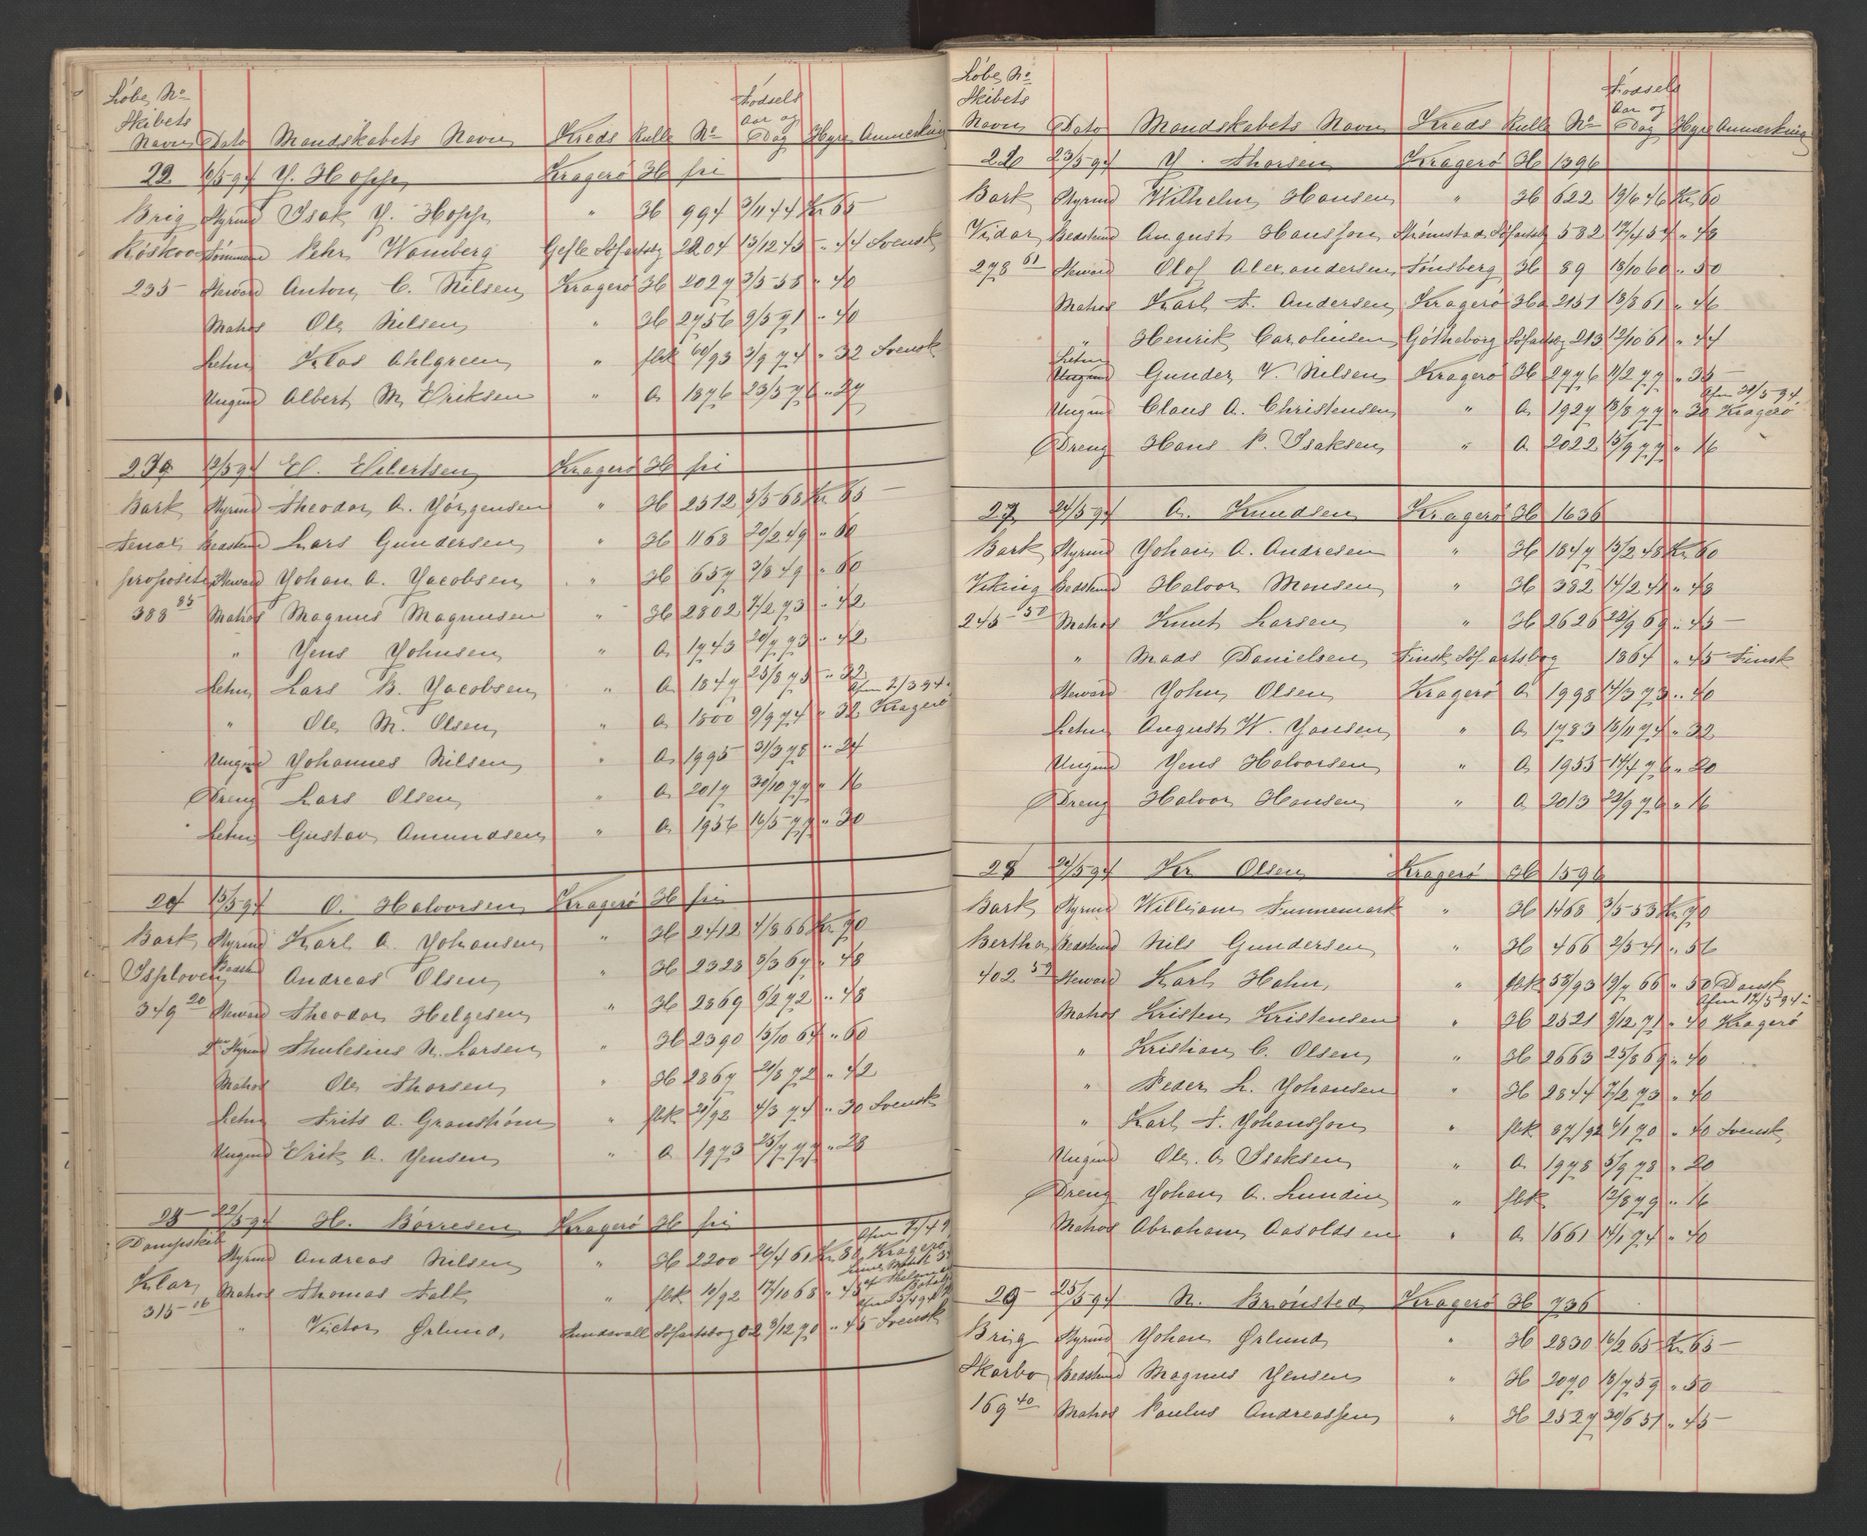 Løbe No
Skibets
Navn Dato Mandskabets Navn Kreds Rulle No Fødsels Aar og Dag Hyre Anmerkning
22 /5 94 J. Hopp Kragerø H fri
Brig Styrmd Isak J. Hopp " H 994 3/11 44 Kr 65
Tømmermd Pehr Wamberg Gefle Søfartsbg 2204 13/12 45 " 44 Svensk
235 Steward Anton C. Nilsen Kragerø H 2027 3/5 58 " 40
Matros Ole Nilsen " H 2756 9/5 71 " 40
Letm Klas Ahlgreen " fbk 60/93 3/9 74 " 32 Svensk
Ungmd Albert M. Eriksen " A 1876 23/5 76 " 27
23 12/5 94 El. Eilertsen Kragerø H fri
Bark Styrmd Theodor A. Jørgensen " H 2512 5/5 68 Kr 65
Bedstmd Lars Gundersen " H 1168 20/2 49 " 60
propositi Steward Johan A. Jacobsen " H 657 3/8 49 " 60
388 85 Matros Magnus Magnusen " H 2802 7/2 73 " 42
" Jens Johnsen " A 1743 20/7 73 " 42
Letm Lars B. Jacobsen " A 1847 25/8 75 " 32
" Ole M. Olsen " A 1800 9/9 74 " 32 Afm 2/3 94 Kragerø
Ungmd Johannes Nilsen " A 1995 31/3 78 " 24
Dreng Lars Olsen " A 2017 30/10 77 " 16
Letm Gustav Amundsen " A 1956 16/5 77 " 30
24 15/5 94 O. Halvorsen Kragerø H fri
Bark Styrmd Karl A. Johansen " H 2412 4/8 66 Kr 70
Isploven Bedstmd Andreas Olsen " H 2323 3/3 67 " 48
349 20 Steward Theodor Helgesen " H 2869 6/2 72 " 48
2den Styrmd Thulesius N. Larsen " H 2390 13/10 64 " 60
Matros Ole Thorsen " H 2867 21/8 72 " 42
Letm Frits A. Granstrøm " fbk 20/92 4/3 74 " 30 Svensk
Ungmd Erik A. Jensen " A 1973 25/7 77 " 28
25 22/5 94 H. Børresen Kragerø H fri
Dampskib Styrmd Andreas Nilsen " H 2200 20/4 61 Kr 80 Kragerø
Klar Matros Thomas Falk " fbk 10/92 17/10 68 " 45
315 16 " Victor Ørlund Sundsvall Søfartsbog 02 9/12 70 " 45 Svensk
Løbe No
Skibets
Navn Dato Mandskabets Navn Kreds Rulle No Fødsels Aar og Dag Hyre Anmerkning
26 23/5 94 J. Thorsen Kragerø H 1396
Bark Styrmd Wilhelm Hansen " H 622 19/6 46 Kr 60
Vidar Bedstmd August Hansson Strømstad Søfartsbg 582 17/4 54 " 48
278 61 Steward Olof Alexandersen Tønsberg H 89 18/10 60 " 50
Matros Karl F. Andersen Kragerø Ha 2151 13/8 61 " 46
" Henrik Carolnisen Gøtheborg Søfartsbg 213 12/10 61 " 44
Letm Ungmd Gunder V. Nilsen Kragerø H 2776 11/2 77 " 35
Ungmd Claus A. Christensen " A 1927 13/8 77 " 30 Afm 28/5 94 Kragerø
Dreng Hans P. Isaksen " A 2022 15/9 77 " 16
27 24/5 94 A. Knudsen Kragerø H 1636
Bark Styrmd Johan A. Andresen " H 1847 13/2 48 Kr 60
Viking Bedstmd Halvor Monsen " H 382 14/2 41 " 48
245 50 Matros Knut Larsen " H 2626 22/9 69 " 45
" Mads Danielsen Finsk Søfartsbog 1864 " 45 Finsk
Steward John Olsen Kragerø A 1998 14/3 73 " 40
Letm August W. Jansen " A 1783 13/11 74 " 32
Ungmd Jens Halvorsen " A 1955 14/4 76 " 20
Dreng Halvor Hansen " A 2013 22/9 76 " 16
28 24/5 94 Kr Olsen Kragerø H 1596
Bark Styrmd William Tunnemark " H 1468 3/5 53 Kr 70
Bertha Bedstmd Nils Gundersen " H 466 2/5 41 " 56
402 59 Steward Karl Hahn " fbk 58/93 19/7 66 " 50 Dansk
Matros Kristen Kristensen " H 2521 9/12 71 " 40 Afm 17/5 94 Kragerø
" Kristian C. Olsen " H 2663 25/8 69 " 40
" Peder L. Johansen " H 2844 7/2 73 " 40
" Karl F. Johansson " fbk 87/92 6/1 70 " 40 Svensk
Ungmd Ole A. Isaksen " A 1978 5/9 78 " 20
Dreng Johan A. Lundin " fbk 12/8 79 " 16
Matros Abraham Aasoldsen " A 1661 14/1 74 " 40
29 25/5 94 N. Brønsted Kragerø H 736
Brig Styrmd Johan Ørlund " H 2830 16/2 65 Kr 65
Skarbo Bedstmd Magnus Jensen " H 2070 18/7 59 " 50
169 40 Matros Paulus Andreassen " H 2527 30/6 51 " 45